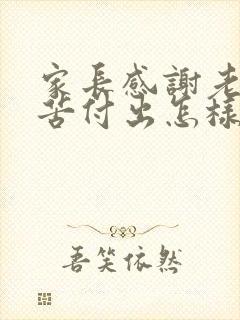 家長感謝老
苦付出怎樣
吾笑依然